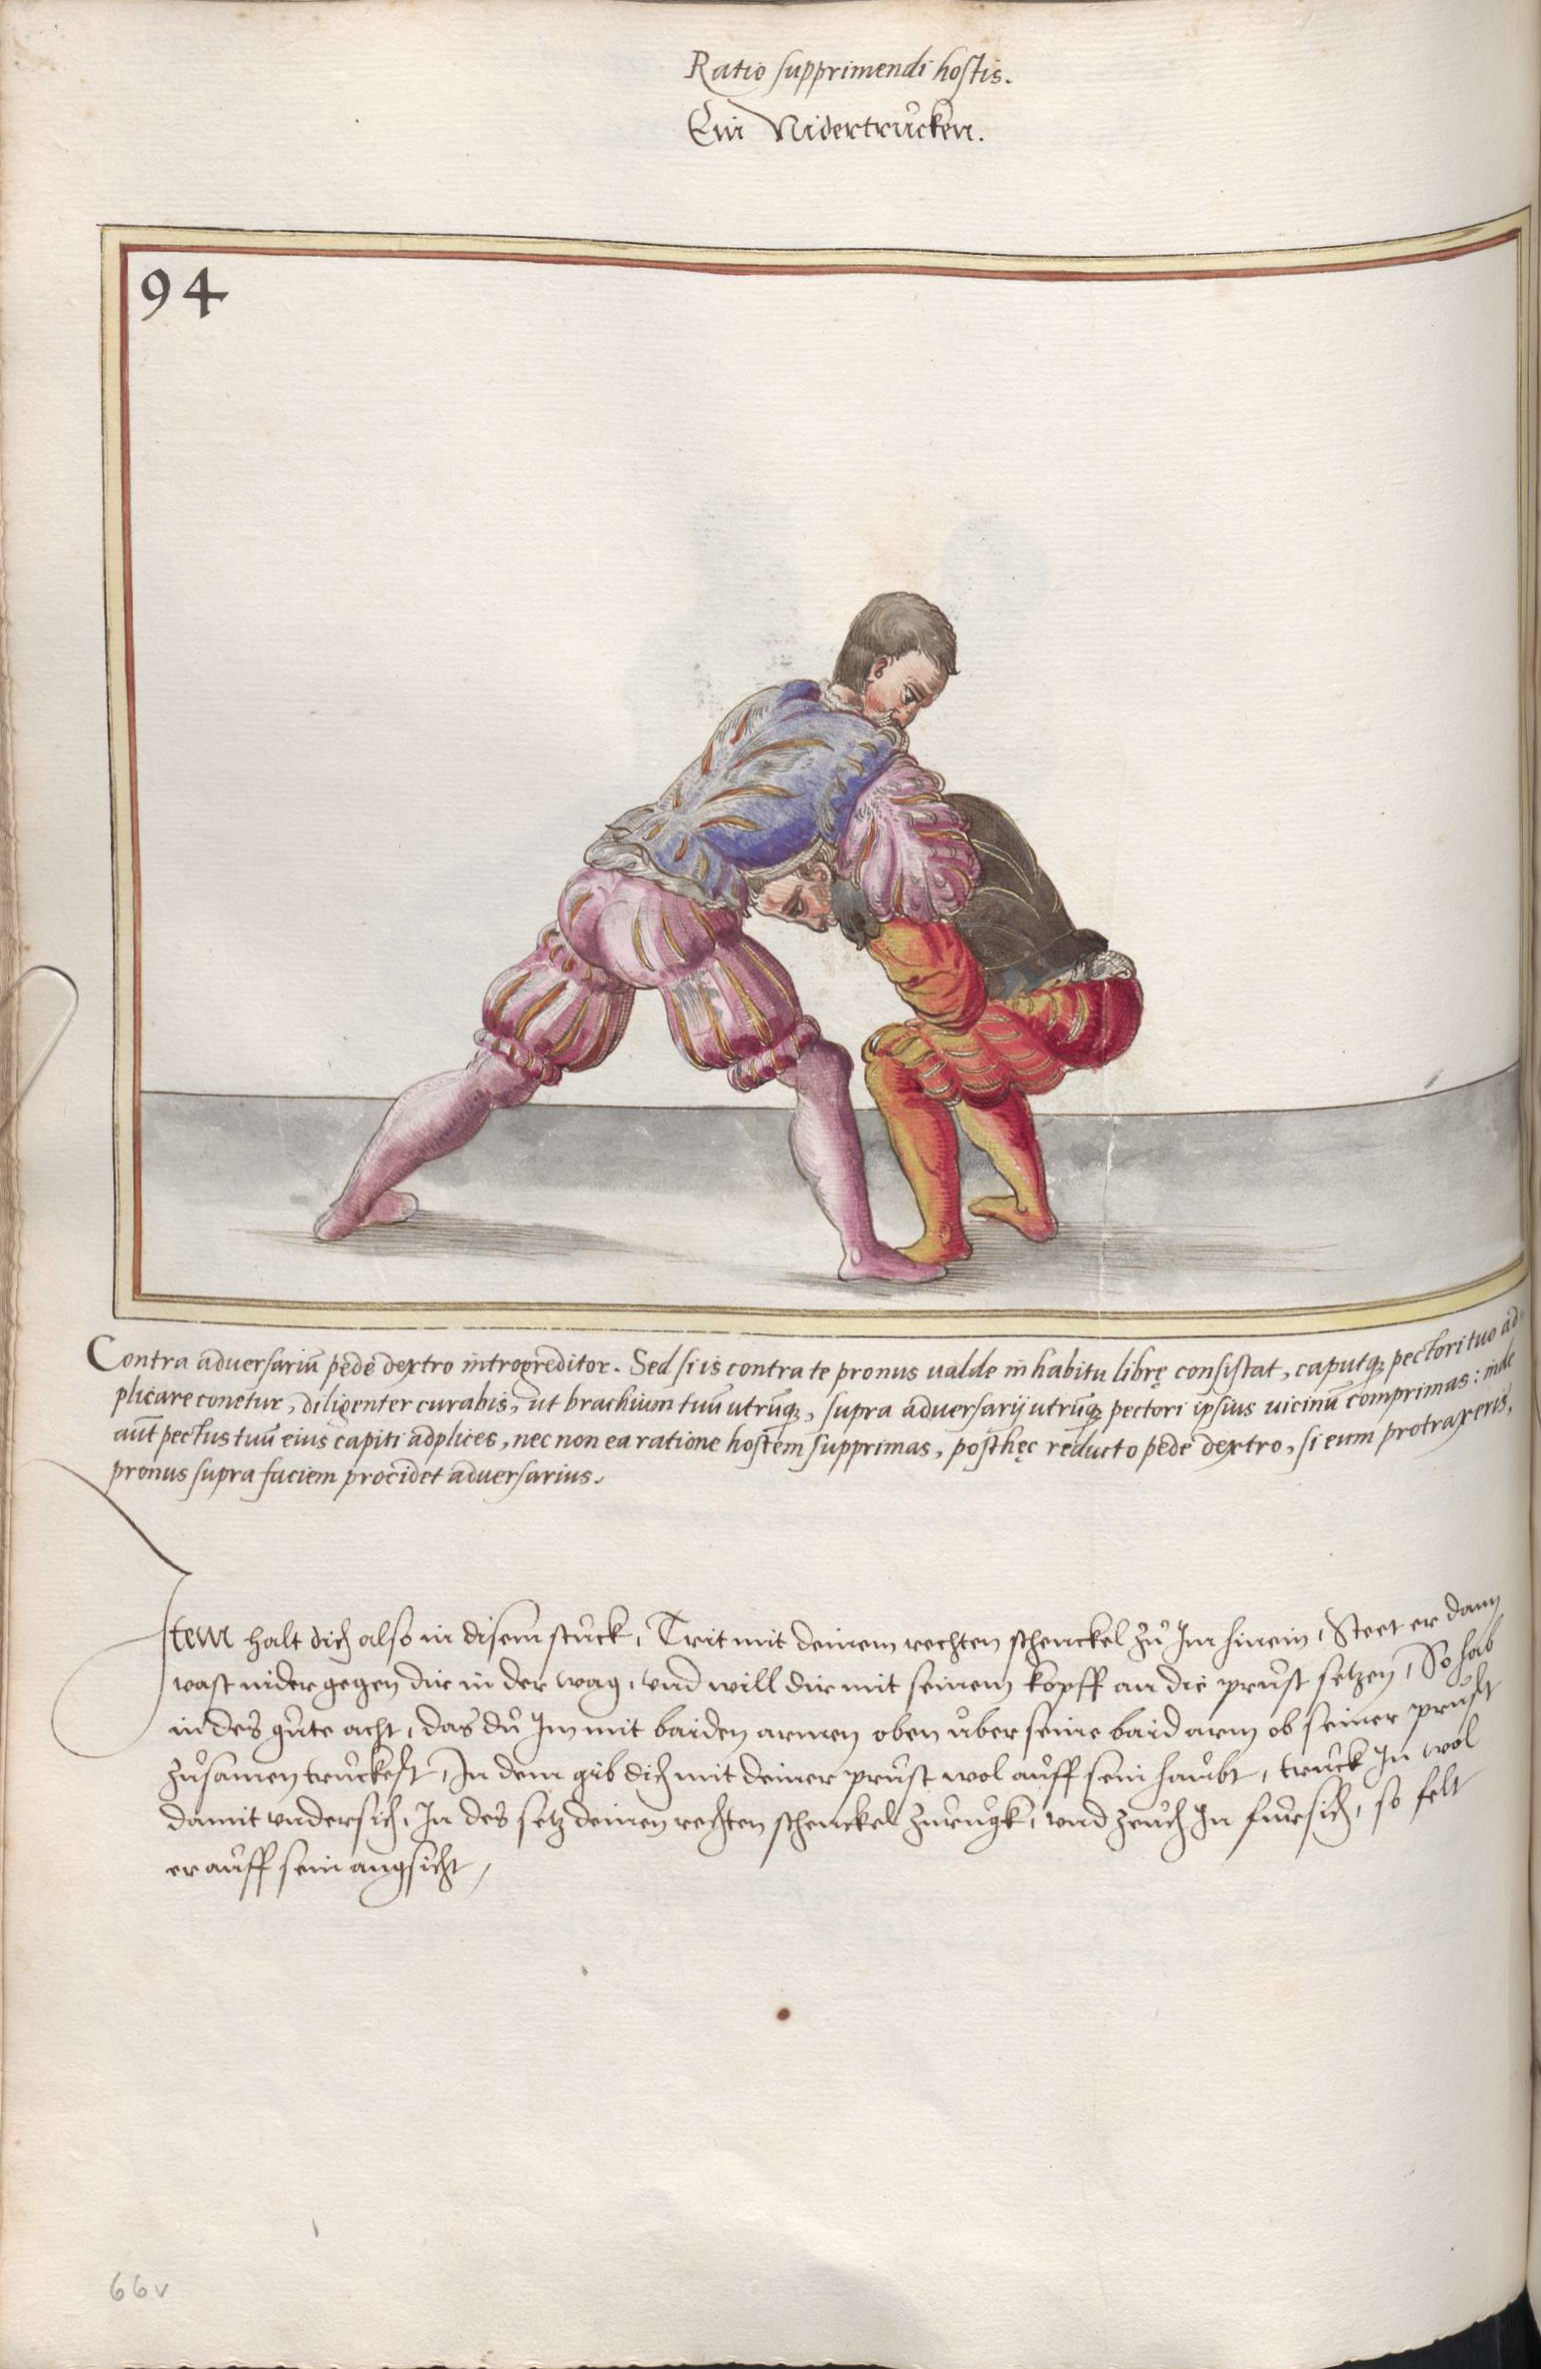 Ratio supprimendi hostis.
Ein Nidertrůcken.
94
Contra aduersariū pede dextro introgreditor. Sed si is contra te pronus ualde in habitu librę consistat, caputq; pectori tuo ad-
plicare conetur, diligenter curabis, ut brachium tuū utrūq;, supra aduersarij utrūq; pectori ipsius uicinū comprimas: inde
aūt pectus tuū eius capiti adplices, nec non ea ratione hostem supprimas, posthęc reducto pede dextro, si eum protraxeris,
pronus supra faciem procidet aduersarius.
Item halt dich also in disem stuck, Trit mit deinem rechten schenckel zů Im hinein, Steet er dann
vast nider gegen dir in der wag, und will dir mit seinem kopff an die prust setzen, So hab
in des gůte acht, das dů Im mit baiden armen oben ůber seine baid arm ob seiner prust
zůsamen truckest, In dem gib dich mit deiner prust wol auff sein haubt, truck In wol
damit undersich, In des setz deinen rechten schenckel zurugk, und zeuch In fursich, so felt
er auff sein angsicht,
66v